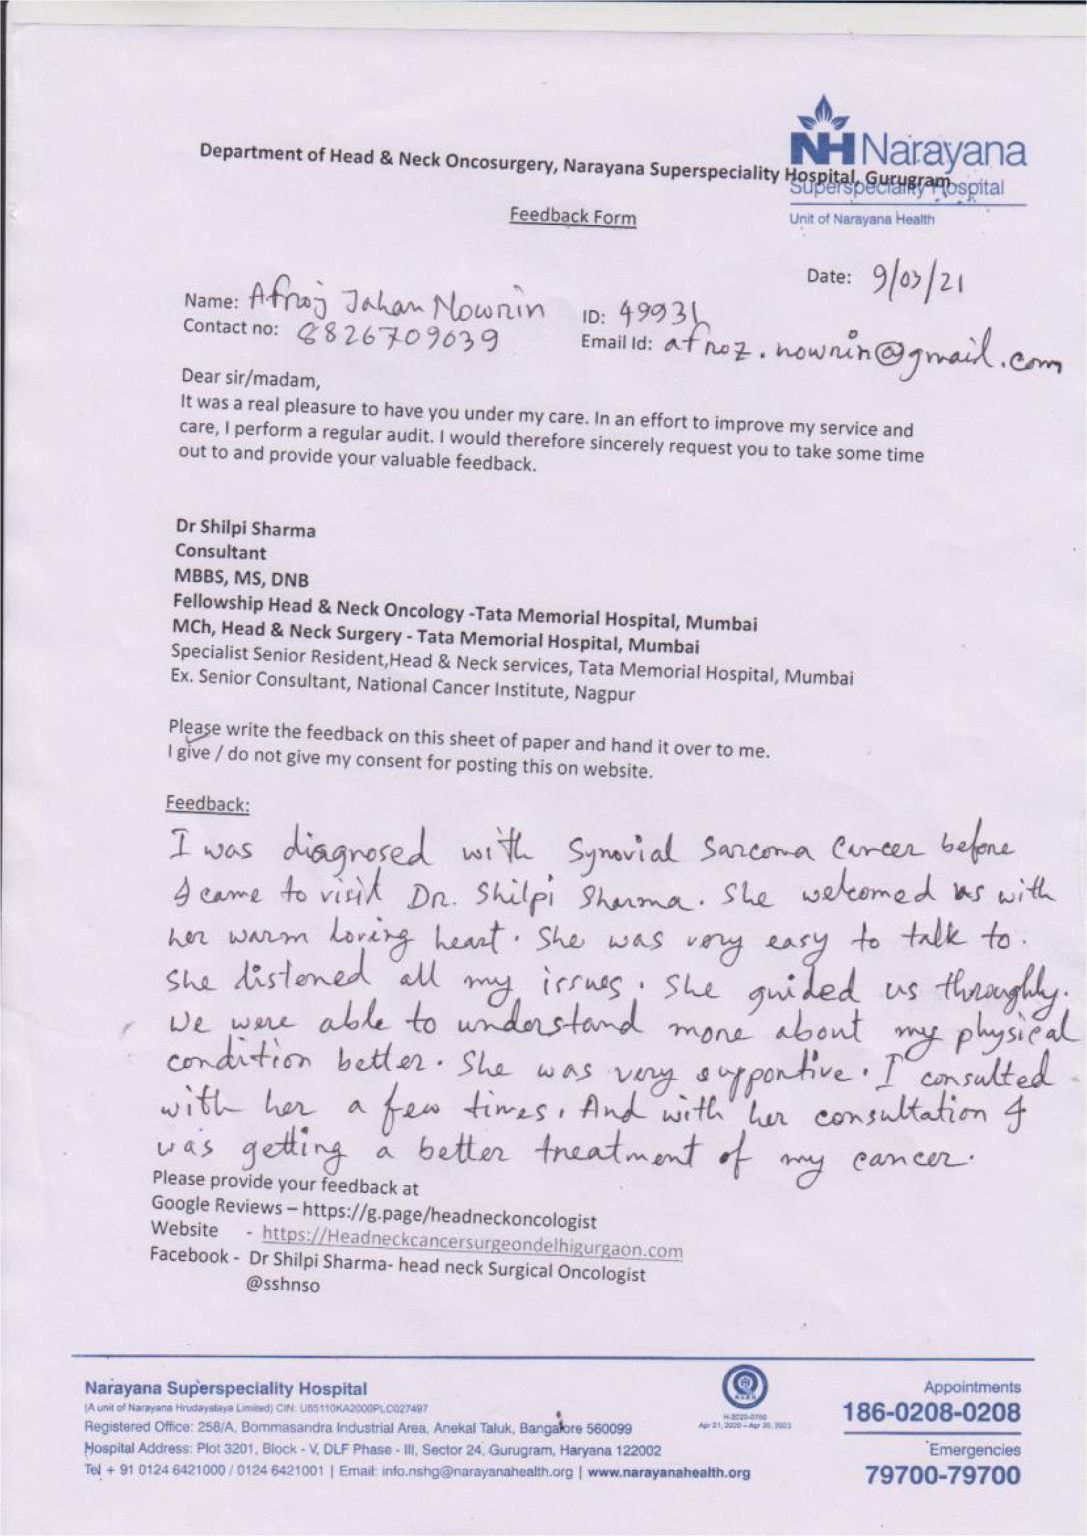 NH Narayana
Superspeciality Hospital
Unit of Narayana Health
Department of Head & Neck Oncosurgery, Narayana Superspeciality Hospital, Gurugram
Feedback Form
Date: 9/03/21
Name: Afroj Jahan Nowrin ID: 49931
Contact no: 8826709639 Email Id: afroz.nowrin@gmail.com
Dear sir/madam,
It was a real pleasure to have you under my care. In an effort to improve my service and
care, I perform a regular audit. I would therefore sincerely request you to take some time
out to and provide your valuable feedback.
Dr Shilpi Sharma
Consultant
MBBS, MS, DNB
Fellowship Head & Neck Oncology -Tata Memorial Hospital, Mumbai
MCh, Head & Neck Surgery - Tata Memorial Hospital, Mumbai
Specialist Senior Resident,Head & Neck services, Tata Memorial Hospital, Mumbai
Ex. Senior Consultant, National Cancer Institute, Nagpur
Please write the feedback on this sheet of paper and hand it over to me.
I give / do not give my consent for posting this on website.
Feedback:
I was diagnosed with Synovial Sarcoma Cancer before
I came to visit Dr. Shilpi Sharma. She welcomed us with
her warm loving heart. She was very easy to talk to.
She listened all my issues. She guided us throughly.
We were able to understand more about my physical
condition better. She was very supportive. I consulted
with her a few times. And with her consultation I
was getting a better treatment of my cancer.
Please provide your feedback at
Google Reviews – https://g.page/headneckoncologist
Website - https://Headneckcancersurgeondelhigurgaon.com
Facebook - Dr Shilpi Sharma- head neck Surgical Oncologist
@sshnso
Narayana Superspeciality Hospital
(A unit of Narayana Hrudayalaya Limited) CIN: U85110KA2000PLC027497
Registered Office: 258/A, Bommasandra Industrial Area, Anekal Taluk, Bangalore 560099
Hospital Address: Plot 3201, Block - V, DLF Phase - III, Sector 24, Gurugram, Haryana 122002
Tel + 91 0124 6421000 / 0124 6421001 | Email: info.nshg@narayanahealth.org | www.narayanahealth.org
H-2020-0700
Apr 21, 2020 – Apr 20, 2023
Appointments
186-0208-0208
Emergencies
79700-79700